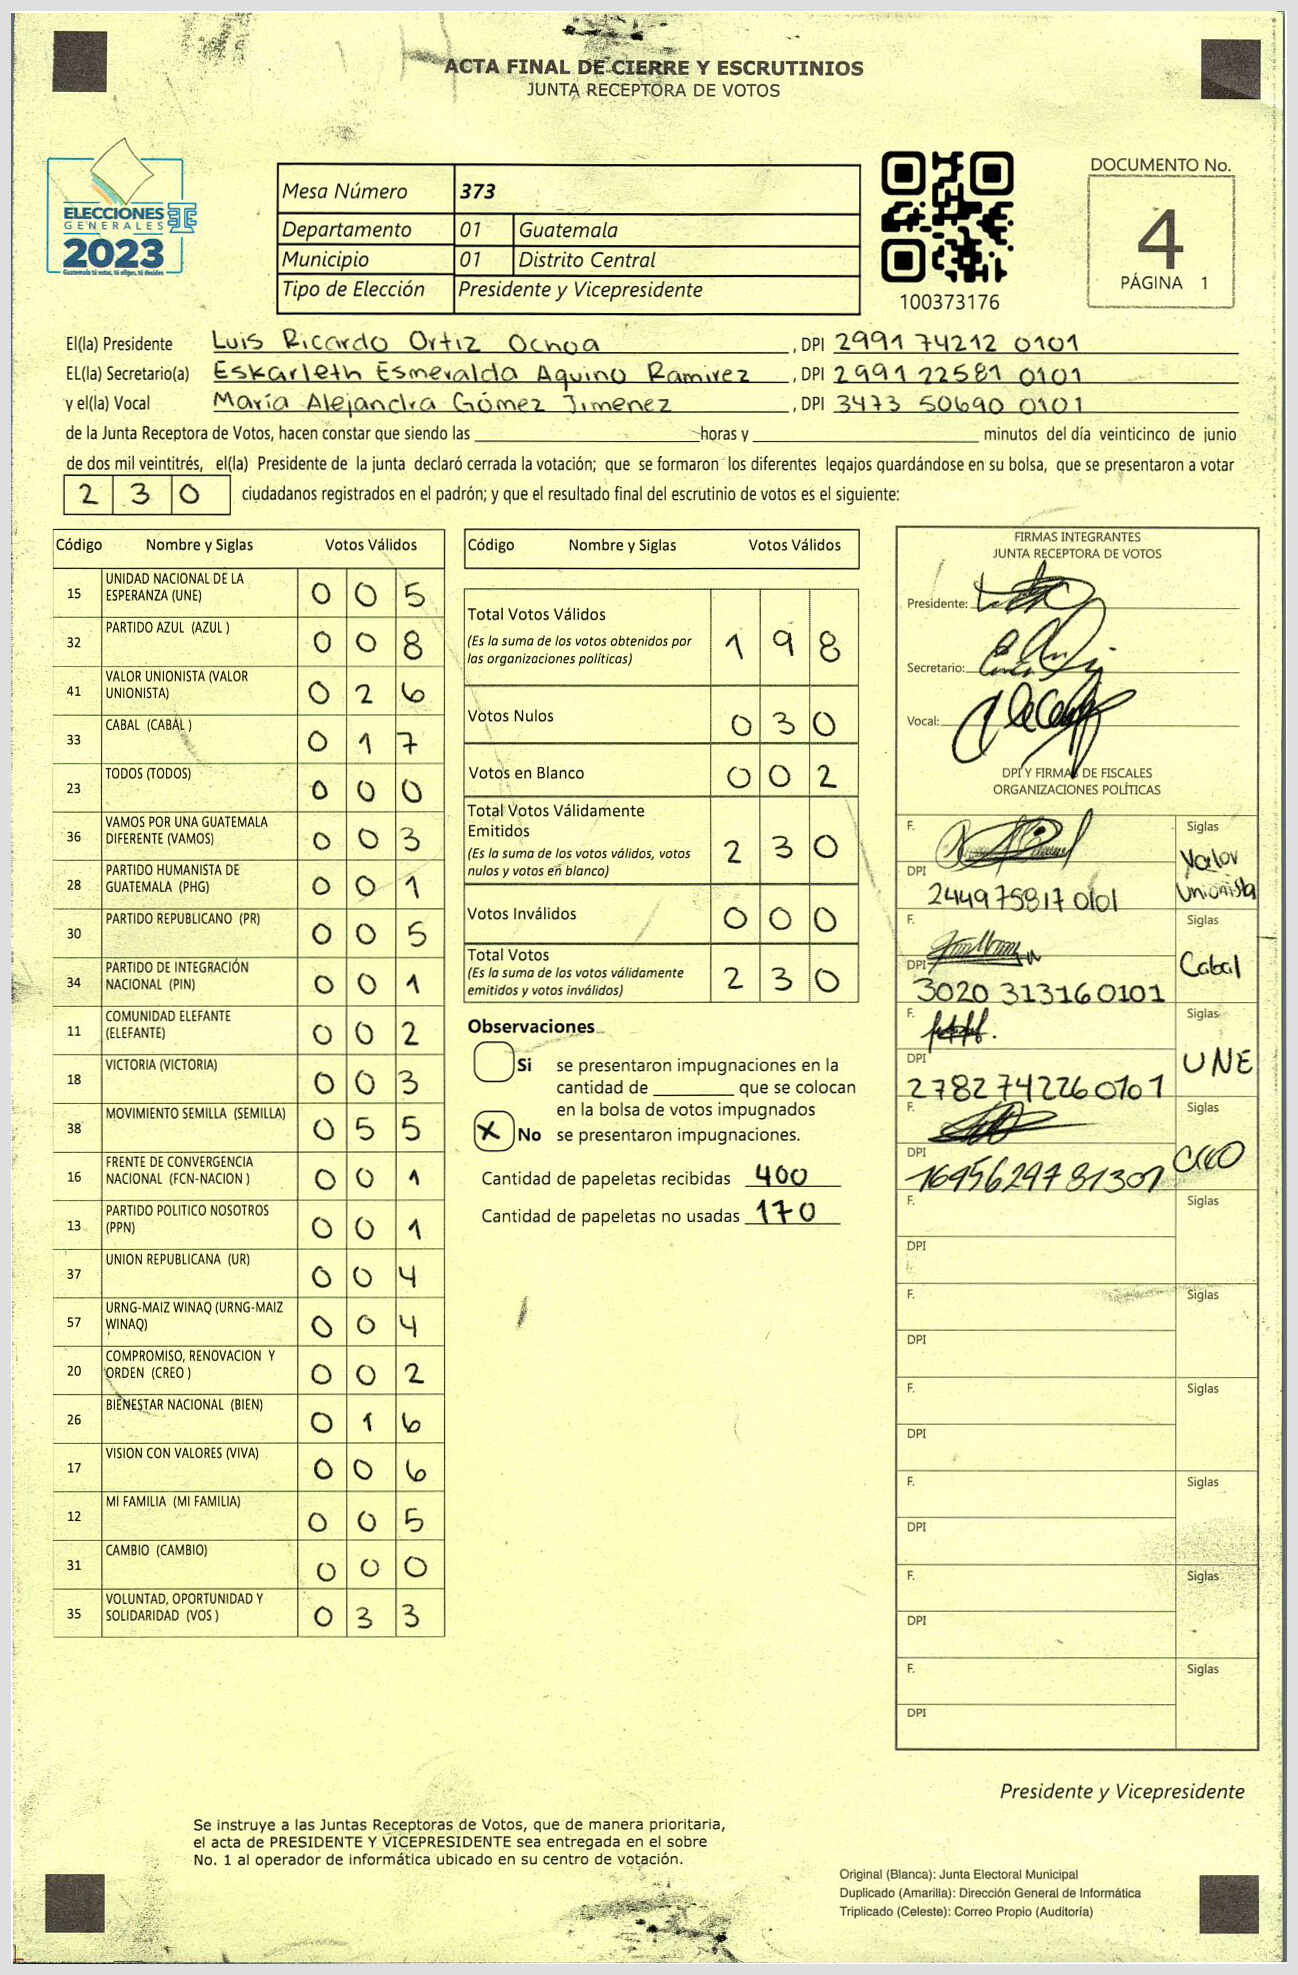 ACTA FINAL DE CIERRE Y ESCRUTINIOS
JUNTA RECEPTORA DE VOTOS
ELECCIONES
GENERALES
2023
Guatemala tú votas, tú eliges, tú decides
Mesa Número 373
Departamento 01 Guatemala
Municipio 01 Distrito Central
Tipo de Elección Presidente y Vicepresidente
100373176
DOCUMENTO No.
4
PÁGINA 1
El(la) Presidente Luis Ricardo Ortiz Ochoa , DPI 2991 74212 0101
EL(la) Secretario(a) Eskarleth Esmeralda Aquino Ramirez , DPI 2991 22581 0101
y el(la) Vocal María Alejandra Gómez Jimenez , DPI 3473 50690 0101
de la Junta Receptora de Votos, hacen constar que siendo las ____ horas y ____ minutos del día veinticinco de junio
de dos mil veintitrés, el(la) Presidente de la junta declaró cerrada la votación; que se formaron los diferentes legajos guardándose en su bolsa, que se presentaron a votar
2 3 0 ciudadanos registrados en el padrón; y que el resultado final del escrutinio de votos es el siguiente:
Código Nombre y Siglas Votos Válidos
15 UNIDAD NACIONAL DE LA ESPERANZA (UNE) 0 0 5
32 PARTIDO AZUL (AZUL ) 0 0 8
41 VALOR UNIONISTA (VALOR UNIONISTA) 0 2 6
33 CABAL (CABAL ) 0 1 7
23 TODOS (TODOS) 0 0 0
36 VAMOS POR UNA GUATEMALA DIFERENTE (VAMOS) 0 0 3
28 PARTIDO HUMANISTA DE GUATEMALA (PHG) 0 0 1
30 PARTIDO REPUBLICANO (PR) 0 0 5
34 PARTIDO DE INTEGRACIÓN NACIONAL (PIN) 0 0 1
11 COMUNIDAD ELEFANTE (ELEFANTE) 0 0 2
18 VICTORIA (VICTORIA) 0 0 3
38 MOVIMIENTO SEMILLA (SEMILLA) 0 5 5
16 FRENTE DE CONVERGENCIA NACIONAL (FCN-NACION ) 0 0 1
13 PARTIDO POLITICO NOSOTROS (PPN) 0 0 1
37 UNION REPUBLICANA (UR) 0 0 4
57 URNG-MAIZ WINAQ (URNG-MAIZ WINAQ) 0 0 4
20 COMPROMISO, RENOVACION Y ORDEN (CREO ) 0 0 2
26 BIENESTAR NACIONAL (BIEN) 0 1 6
17 VISION CON VALORES (VIVA) 0 0 6
12 MI FAMILIA (MI FAMILIA) 0 0 5
31 CAMBIO (CAMBIO) 0 0 0
35 VOLUNTAD, OPORTUNIDAD Y SOLIDARIDAD (VOS ) 0 3 3
Código Nombre y Siglas Votos Válidos
Total Votos Válidos 1 9 8
(Es la suma de los votos obtenidos por
las organizaciones políticas)
Votos Nulos 0 3 0
Votos en Blanco 0 0 2
Total Votos Válidamente
Emitidos 2 3 0
(Es la suma de los votos válidos, votos
nulos y votos en blanco)
Votos Inválidos 0 0 0
Total Votos 2 3 0
(Es la suma de los votos válidamente
emitidos y votos inválidos)
Observaciones
Si se presentaron impugnaciones en la
cantidad de ____ que se colocan
en la bolsa de votos impugnados
X No se presentaron impugnaciones.
Cantidad de papeletas recibidas 400
Cantidad de papeletas no usadas 170
FIRMAS INTEGRANTES
JUNTA RECEPTORA DE VOTOS
Presidente:
Secretario:
Vocal:
DPI Y FIRMAS DE FISCALES
ORGANIZACIONES POLÍTICAS
F. Siglas
Valor
Unionista
DPI
2449 75817 0101
F. Siglas
Cabal
DPI
3020 31316 0101
F. Siglas
UNE
DPI
2782 74226 0101
F. Siglas
DPI
1695629781301
F. Siglas
DPI
F. Siglas
DPI
F. Siglas
DPI
F. Siglas
DPI
F. Siglas
DPI
F. Siglas
DPI
Presidente y Vicepresidente
Se instruye a las Juntas Receptoras de Votos, que de manera prioritaria,
el acta de PRESIDENTE Y VICEPRESIDENTE sea entregada en el sobre
No. 1 al operador de informática ubicado en su centro de votación.
Original (Blanca): Junta Electoral Municipal
Duplicado (Amarilla): Dirección General de Informática
Triplicado (Celeste): Correo Propio (Auditoría)